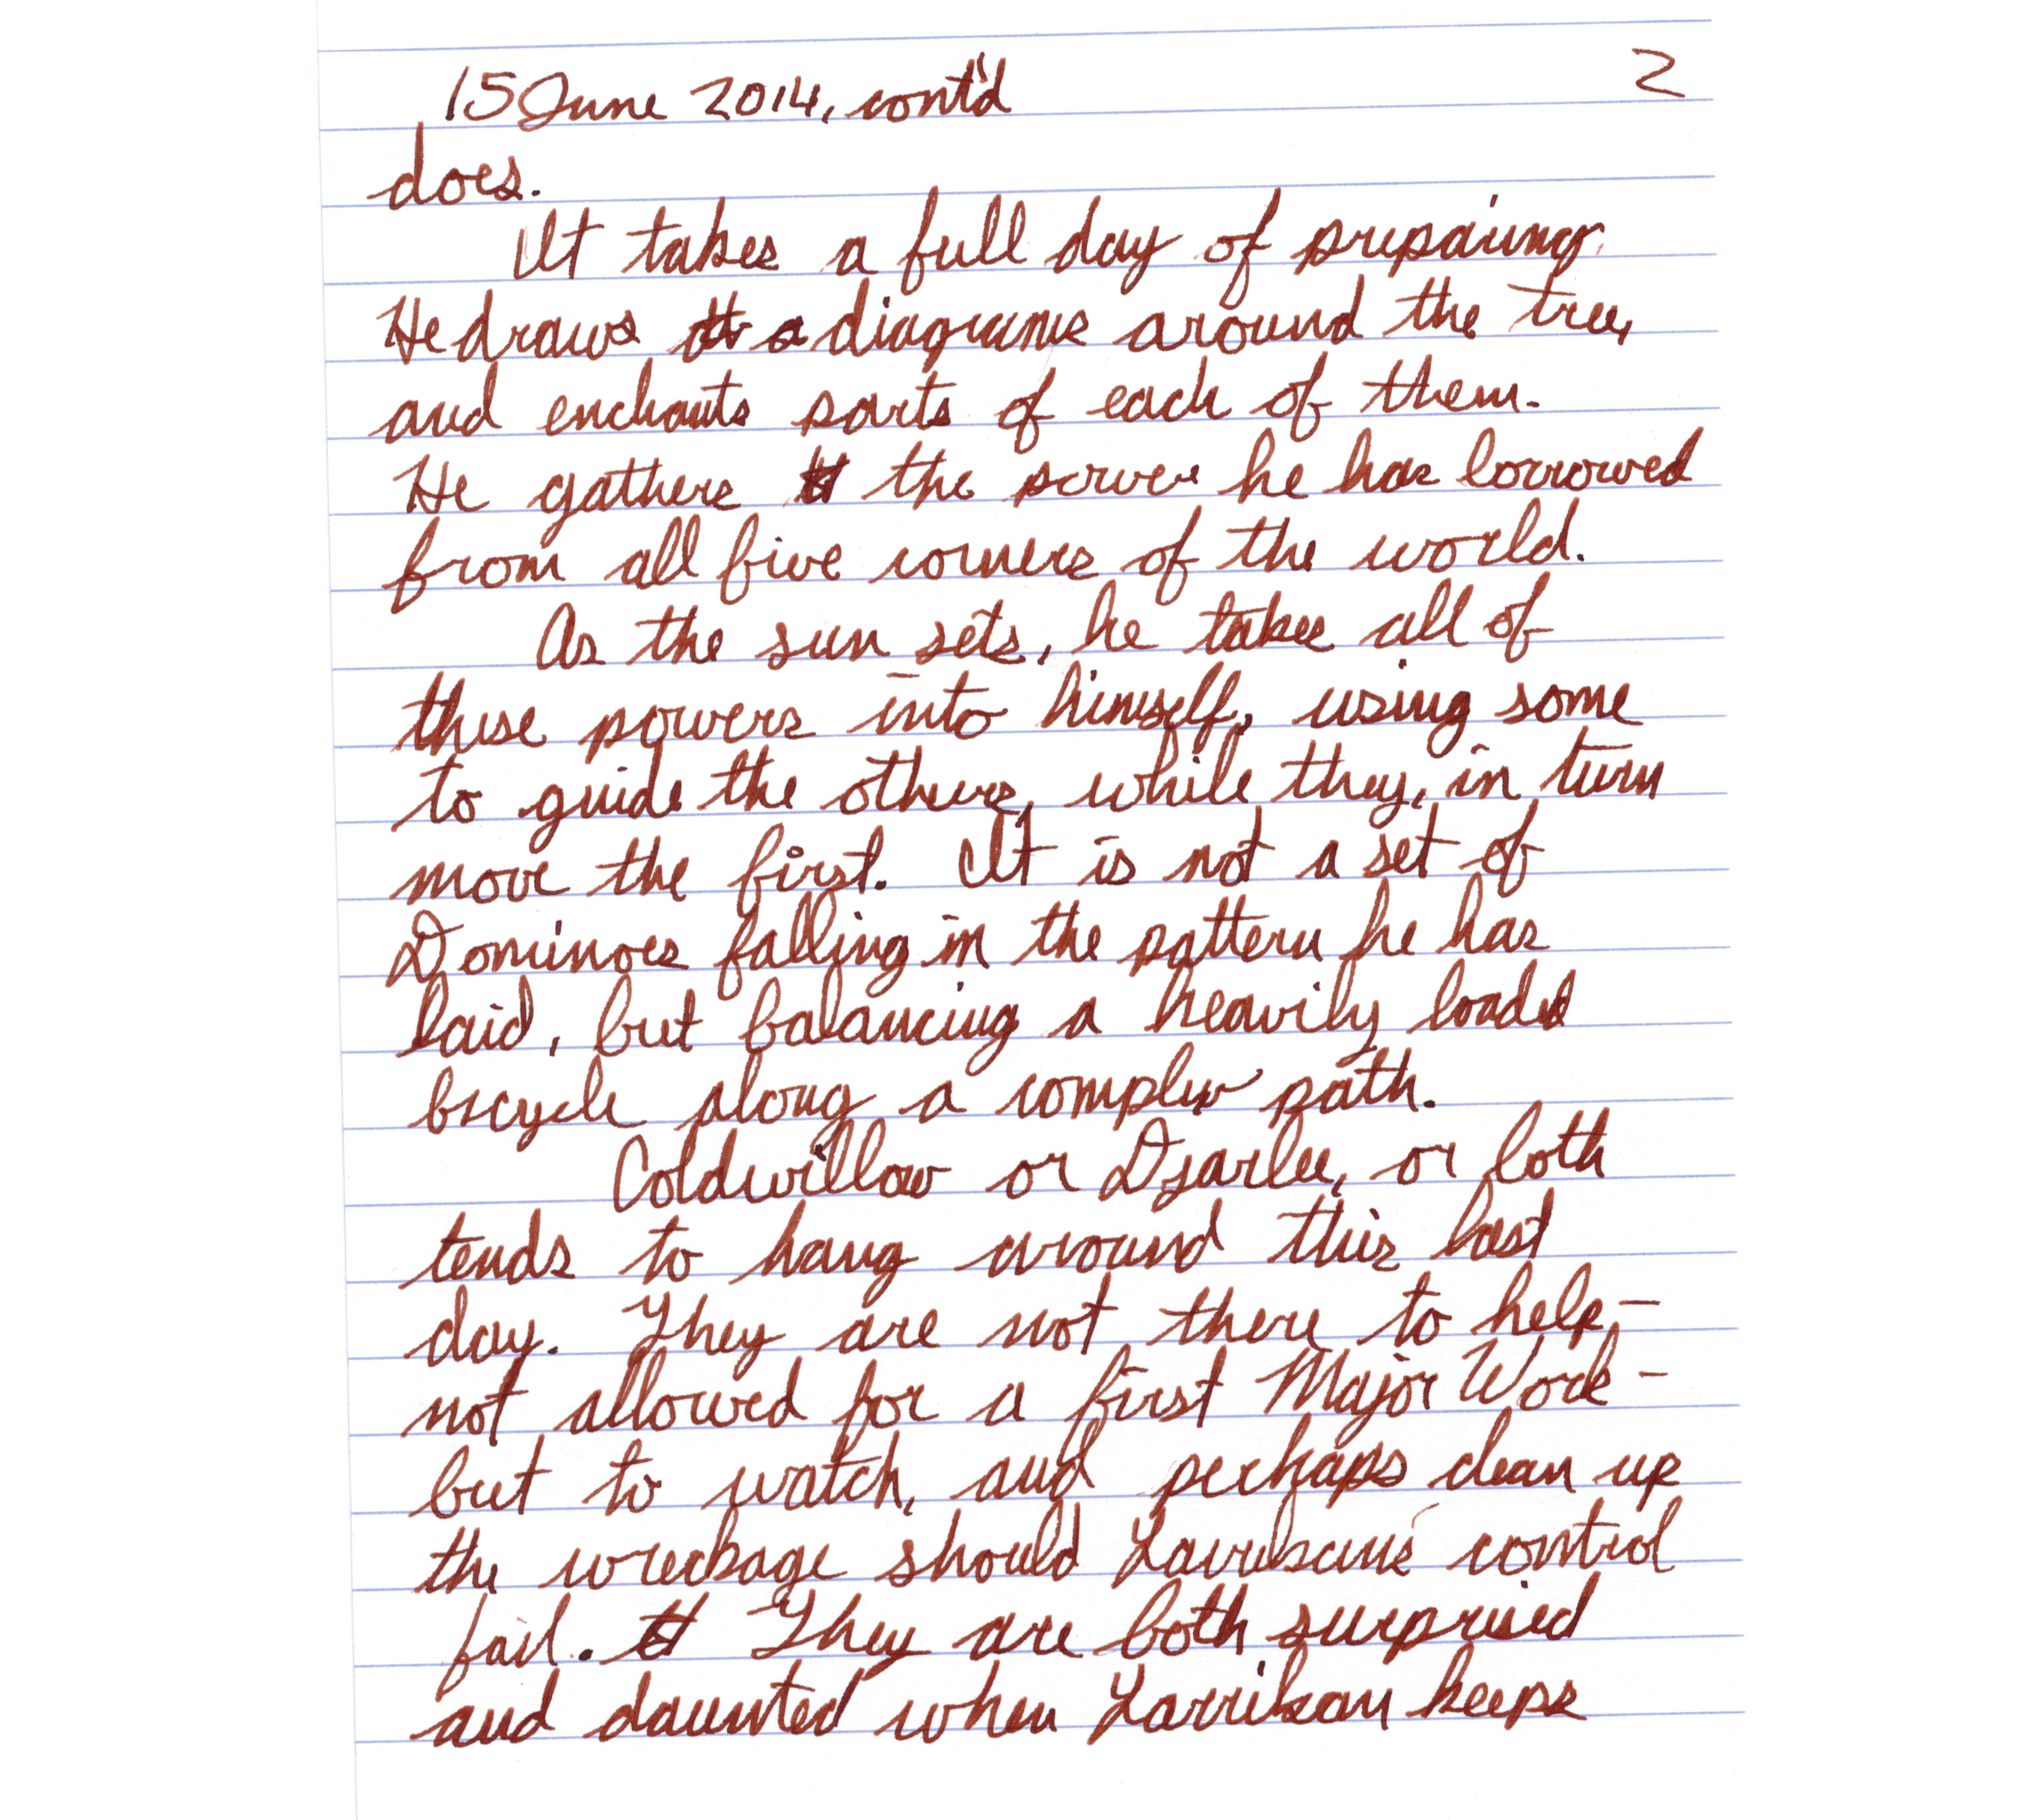 15 June 2014, cont'd 2
does.
It takes a full day of prepairing.
He draws diagrams around the tree,
and enchants parts of each of them.
He gathers the power he has borrowed
from all five corners of the world.
As the sun sets, he takes all of
these powers into himself, using some
to guide the others, while they, in turn
move the first. It is not a set of
Dominoes falling in the pattern he has
laid, but balancing a heavily loaded
bicycle along a complex path.
Coldwillow or Djarlee, or both
tends to hang around this last
day. They are not there to help –
not allowed for a first Major Work –
but to watch, and perhaps clean up
the wreckage should Larrikan's control
fail. They are both surprised
and daunted when Larrikan keeps